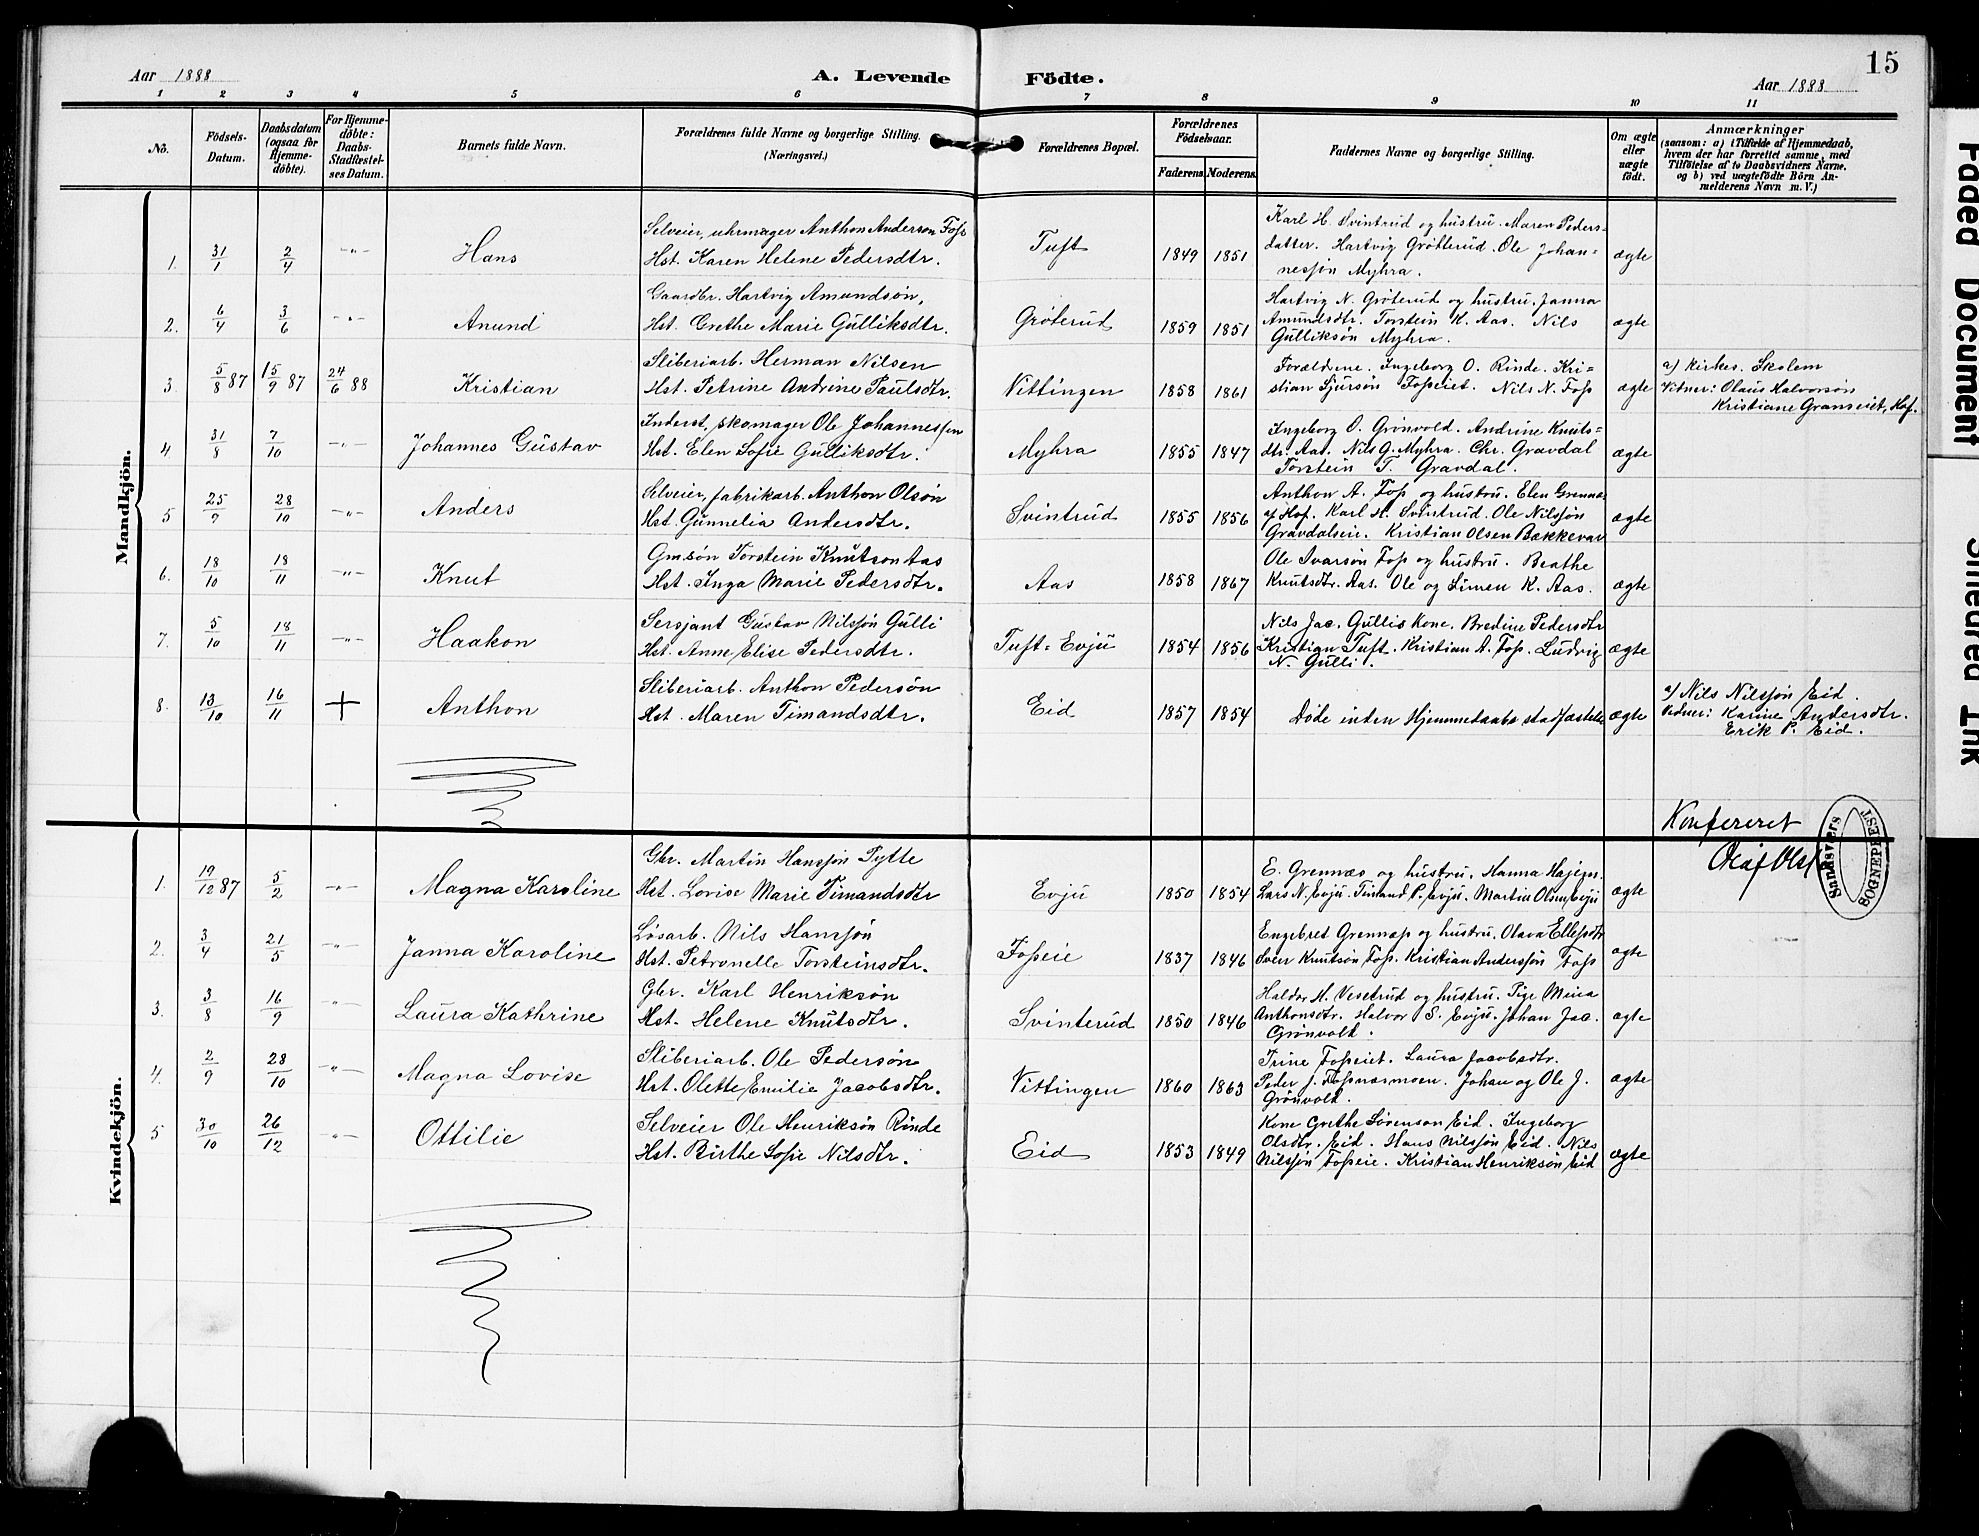 15
Aar 1888
A. Levende Födte.
Aar 1888
1 2 3 4 5 6 7 8 9 10 11
No.
Födsels-Datum.
Daabsdatum (ogsaa for Hjemme-döbte).
For Hjemme-döbte: Daabs-Stadfæstel-ses Datum.
Barnets fulde Navn.
Forældrenes fulde Navne og borgerlige Stilling.
(Næringsvei.)
Forældrenes Bopæl.
Forældrenes Födselsaar.
Faderens Moderens
Faddernes Navne og borgerlige Stilling.
Om ægte eller uægte födt.
Anmærkninger
(saasom: a) i Tilfælde af Hjemmedaab, hvem der har forrettet samme, med Tilföielse af to Daabsvidners Navne. og b) ved uægtefödte Börn An-melderens Navn m. V.)
Mandkjön.
1. 31/1 2/4 -"- Hans
Selveier, uhrmager Anthon Anderson Foss
Hst. Karen Helene Pedersdtr.
Tuft 1849 1851
Karl H. Svintrud og hustru. Maren Peders-
datter. Hartvig Grötterud. Ole Johan-
nessön Myhra.
ægte
2. 6/4 3/6 -"- Anund
Gaardbr. Hartvig Amundsön,
Hst. Grethe Marie Gulliksdtr.
Gröterud 1859 1851
Hartvig N. Gröterud og hustru. Janna
Amundsdtr. Torstein K. Aas. Nils
Gulliksön Myhra.
ægte
3. 5/8 87 15/9 87 24/6 88 Kristian
Sliberiarb. Herman Nilsen
Hst. Petrine Andrine Paulsdtr.
Vittingen 1858 1861
Forældrene. Ingeborg O. Rinde. Kri-
stian Sjursön Fosseiet. Nils N. Foss
ægte
a) Kirkes. Skolem
Vidner: Olaus Halvorsön
Kristiane Granseiet, Hof.
4. 31/8 7/10 -"- Johannes Gustav
Inderst, skomager Ole Johannessen
Hst. Elen Sofie Gulliksdtr.
Myhra 1855 1847
Ingeborg O. Grönvold. Andrine Knuts-
dtr. Aas. Nils G. Myhra. Chr. Gravdal
Torstein T. Gravdal.
ægte
5 25/9 28/10 -"- Anders
Selveier, fabrikarb. Anthon Olsön
Hst. Gunnelia Andersdtr.
Svintrud 1855 1856
Anthon A. Foss og hustru. Elen Grennes
af Hof. Karl H. Svintrud. Ole Nilssön
Gravdalseie. Kristian Olsen Bakkevar
ægte
6. 18/10 18/11 -"- Knut
Gmsön Torstein Knutson Aas
Hst. Inga Marie Pedersdtr.
Aas 1858 1867
Ole Ivarsön Foss og hustru. Beathe
Knutsdtr. Aas. Ole og Simen K. Aas.
ægte
7. 5/10 18/11 -"- Haakon
Sersjant Gustav Nilssön Gulli
Hst. Anne Elise Pedersdtr.
Tuft-Evju 1854 1856
Nils Jac. Gullis Kone. Bredine Pedersdtr
Kristian Tuft. Kristian A. Foss. Ludvig
N. Gulli.
ægte
8. 13/10 16/11 + Anthon
Sliberiarb. Anthon Pedersön
Hst. Maren Timandsdtr.
Eid 1857 1854
Döde inden Hjemmedaabs stadfæstelse
ægte
a) Nils Nilssön Eid.
Vidner: Karine Andersdtr.
Erik P. Eid.
Konfereret
Olaf Olss
Sandsvers
SOGNEPREST
Kvindekjön.
1. 19/12 87 5/2 -"- Magna Karoline
Gbr. Martin Hanssön Pytte
Hst. Lovise Marie Timandsdtr
Evju 1850 1854
E. Grennæs og hustru. Hanna
Lars N. Evju. Timand P. Evju. Martin Olsen Evju
ægte
2. 3/4 21/5 -"- Janna Karoline
Lösarb. Nils Hanssön
Hst. Petronelle Torsteinsdtr.
Fosseie 1837 1846
Engebret Grennæs og hustru. Olava Ellefsdtr
Sver Knutsön Foss. Kristian Anderssön Foss
ægte
3. 3/8 16/9 -"- Laura Kathrine
Gbr. Karl Henriksön
Hst. Helene Knutsdtr.
Svinterud 1850 1846
Haldor H. Vesetrud og hustru. Pige Mina
Anthonsdtr. Halvor S. Evju. Johan Jac.
Grönvold.
ægte
4. 2/9 28/10 -"- Magna Lovise
Sliberiarb. Ole Pedersön
Hst. Olette Emilie Jacobsdtr.
Vittingen 1860 1863
Trine Fosseiet. Laura Jacobsdtr.
Peder J. Fossnæsmoen. Johan og Ole J.
Grönvold.
ægte
5 30/10 26/12 -"- Ottilie
Selveier Ole Henriksön Rinde
Hst. Birthe Sofie Nilsdtr.
Eid 1853 1849
Kone Grethe Sörenson Eid. Ingeborg
Olsdtr. Eid. Hans Nilssön Eid. Nils
Nilssön Fosseie. Kristian Henriksön Eid
ægte
Faded Document
Smeared Ink